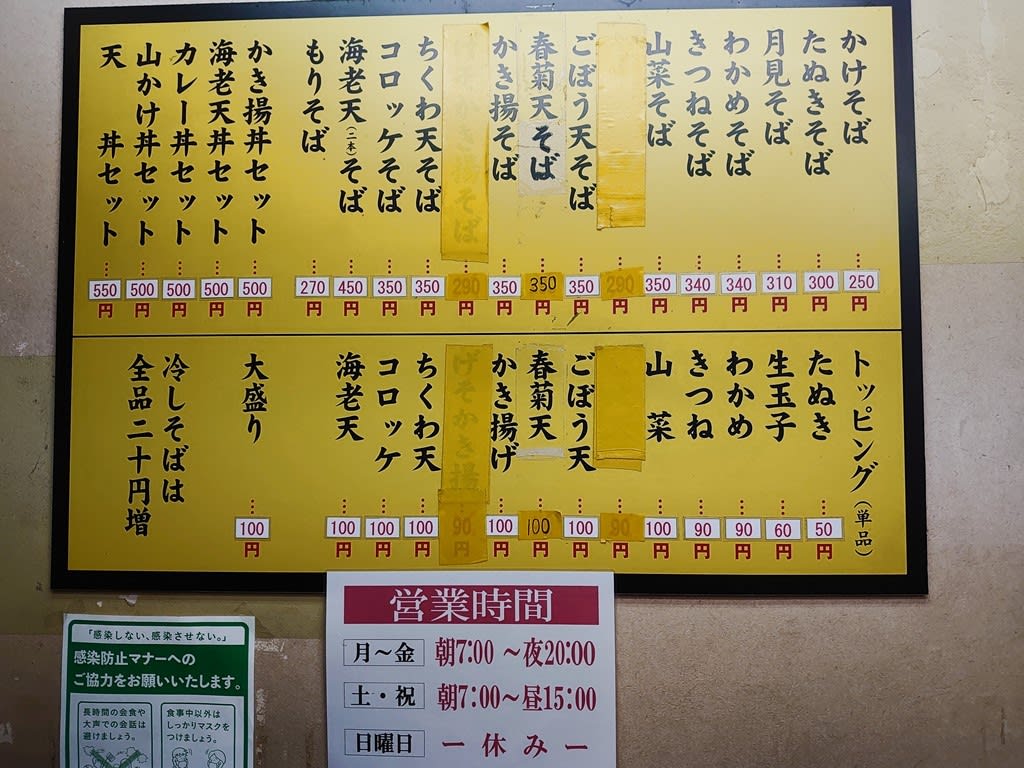 かけそば 250円
たぬきそば 300円
月見そば 310円
わかめそば 340円
きつねそば 340円
山菜そば 350円
290円
ごぼう天そば 350円
春菊天そば 350円
かき揚そば 350円
げそかき揚そば 290円
ちくわ天そば 350円
コロッケそば 350円
海老天(二本)そば 450円
もりそば 270円
かき揚丼セット 500円
海老天丼セット 500円
カレー丼セット 500円
山かけ丼セット 500円
天丼セット 550円
トッピング(単品)
たぬき 50円
生玉子 60円
わかめ 90円
きつね 90円
山菜 100円
90円
ごぼう天 100円
春菊天 100円
かき揚げ 100円
げそかき揚 90円
ちくわ天 100円
コロッケ 100円
海老天 100円
大盛り 100円
冷しそばは
全品二十円増
営業時間
月〜金 朝7:00 〜夜20:00
土・祝 朝7:00〜昼15:00
日曜日 ー 休 み ー
「感染しない、感染させない。」
感染防止マナーへの
ご協力をお願いいたします。
長時間の会食や
大声での会話は
避けましょう。
食事中以外は
しっかりマスクを
つけましょう。